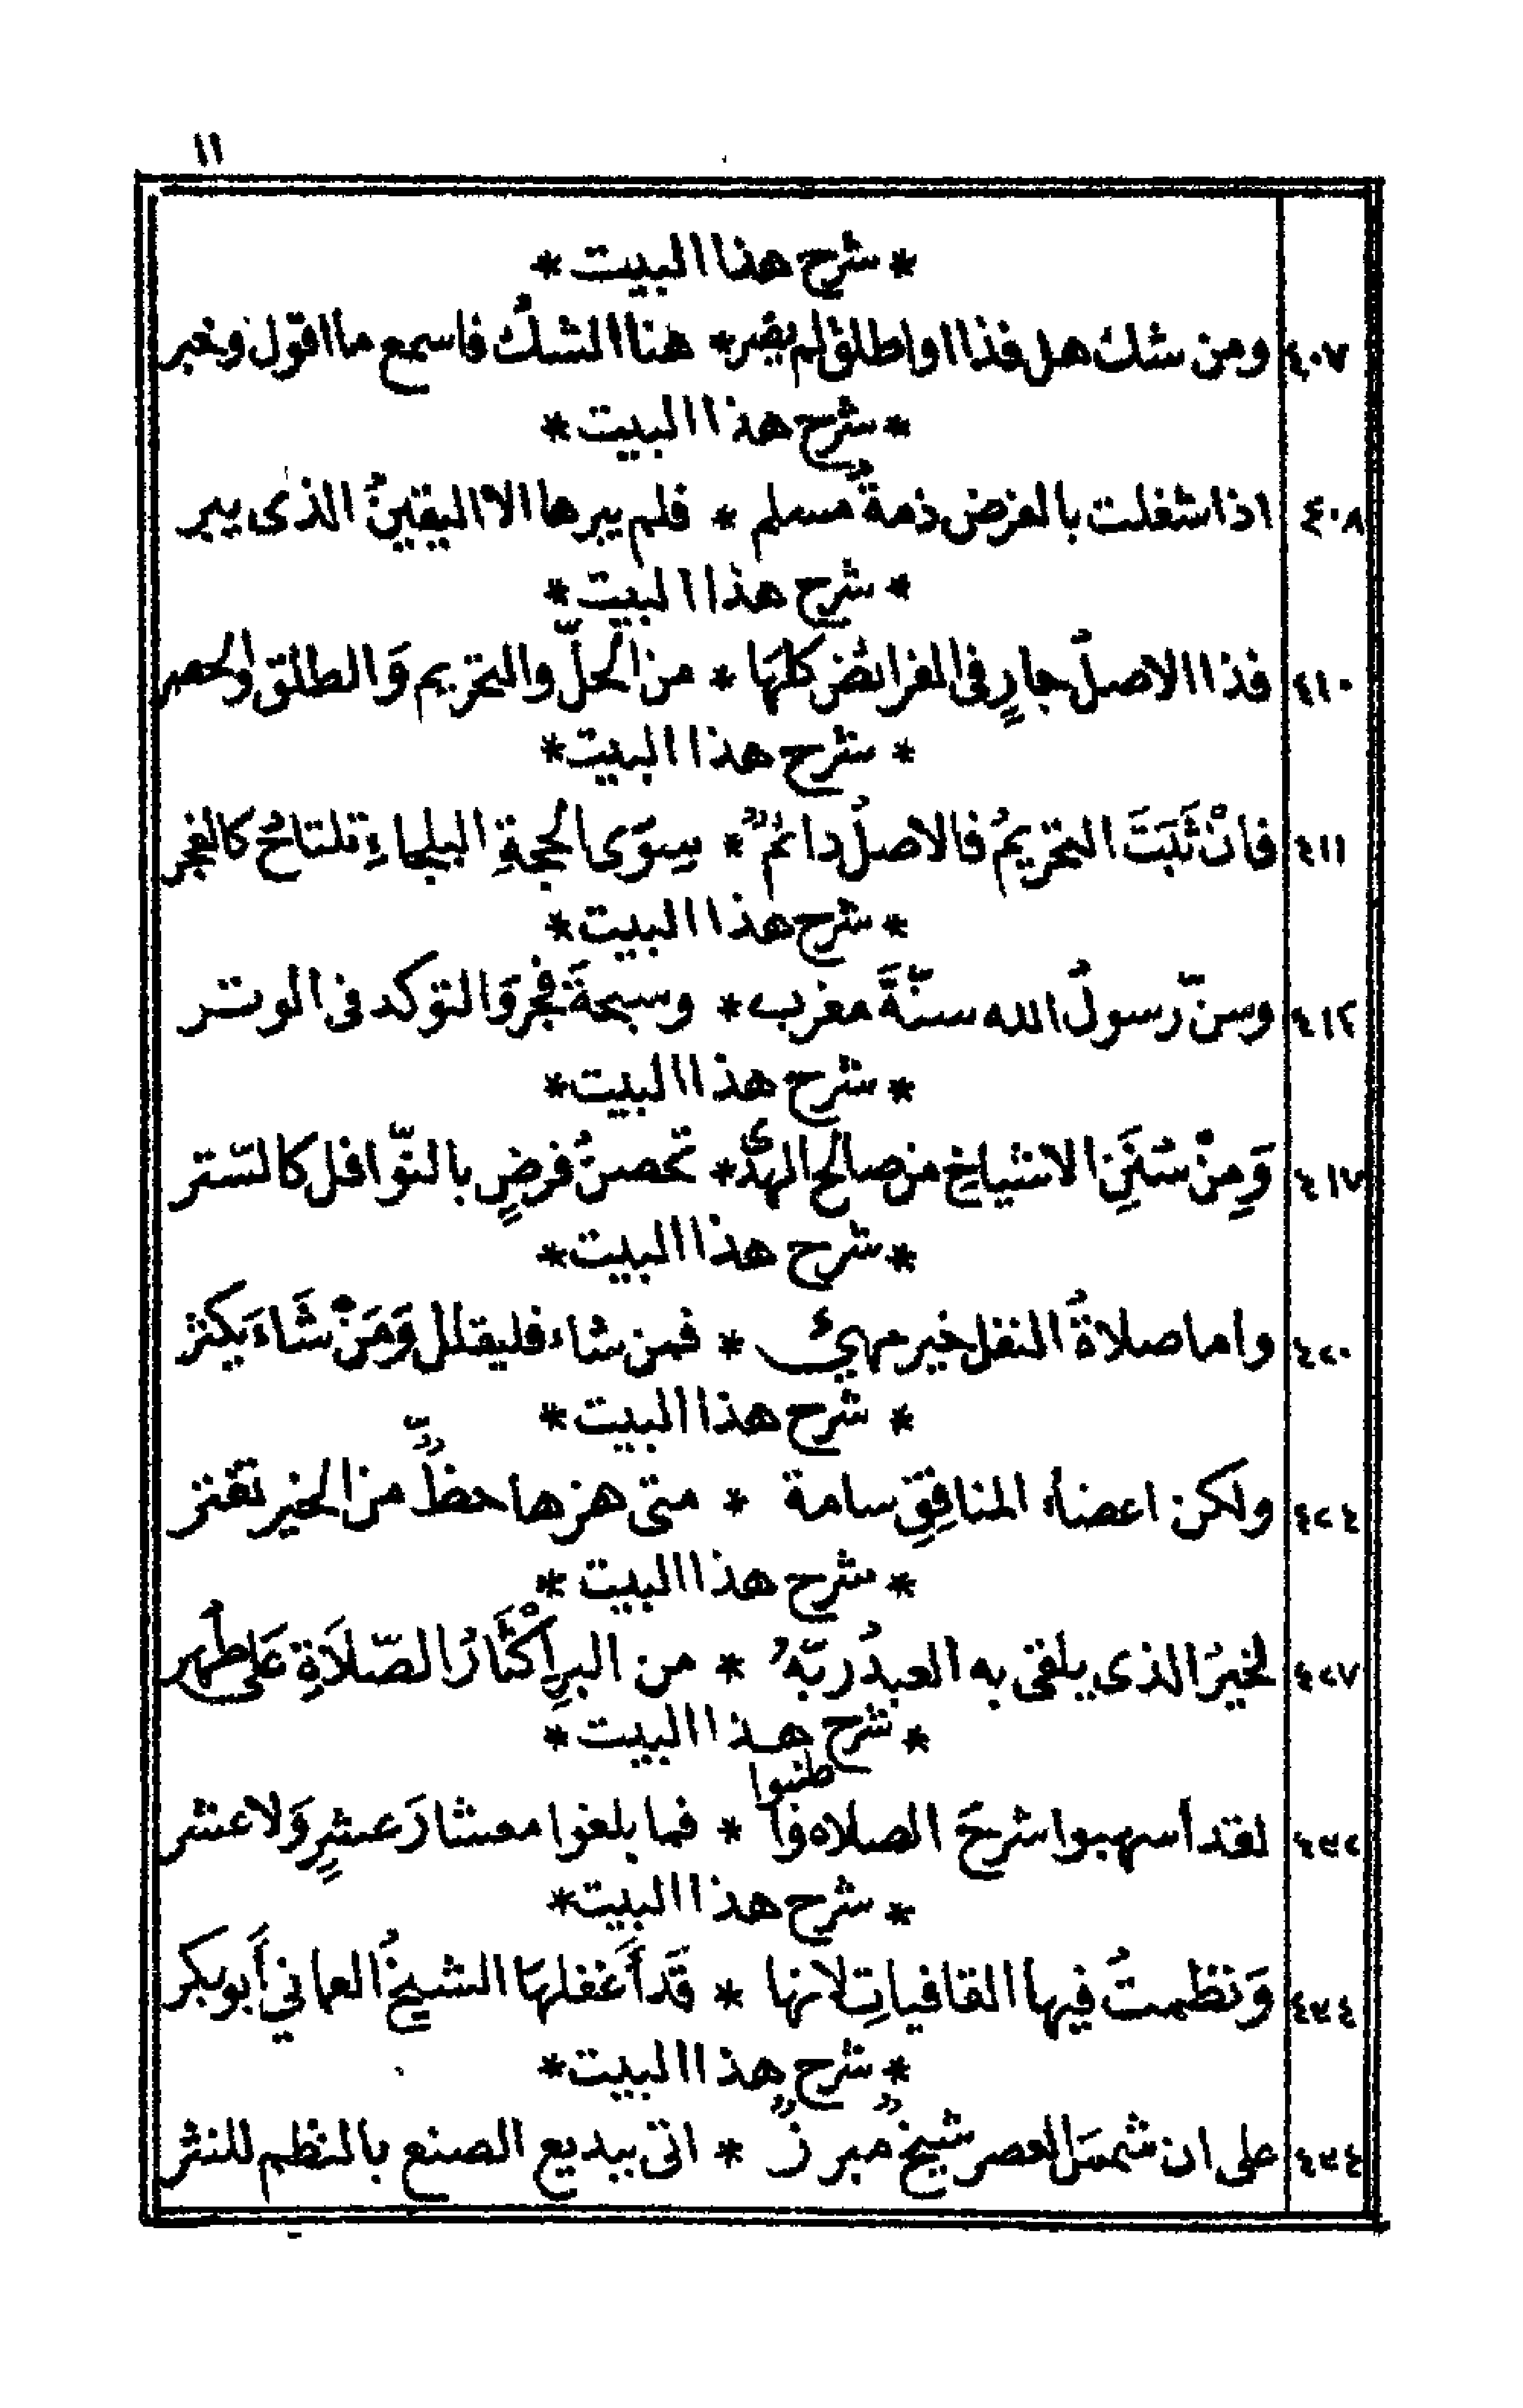 ١١
* شرح هذا البيت *
٤٠٧ ومن شك هل فذا او اطلق لم يضر * هنا الشكُ فاسمع ما اقول وخبر
* شرح هذا البيت *
٤٠٨ اذا شغلت بالفرض ذمةُ مسلم * فلم يبرها الا اليقينُ الذى يبر
* شرح هذا البيت *
٤١٠ فذا الاصلُ جارٍ فى الفرائض كلهَا * من الحلّ والتحريم وَالطلق والحصر
* شرح هذا البيت *
٤١١ فانْ ثَبَتَ التحريمُ فالاصلُ دائمٌ * سِوَى الحجةِ البلجاءِ تلتاحُ كالفجر
* شرح هذا البيت *
٤١٢ وسنّ رسولُ الله سنّةَ مغرب * وسبحةَ فجر وَالتوكد فى الوتر
* شرح هذا البيت *
٤١٧ وَمِنْ سُنَنِ الاشياخِ من صالح الهدُى * تحصنُ فرضٍ بالنّوافل كالستر
* شرح هذا البيت *
٤٢٠ واما صلاةُ النفل خير مهيئ * فمن شاء فليقلل وَمَنْ شَاءَ يكثر
* شرح هذا البيت *
٤٢٤ ولكن اعضاء المنافِقِ سامة * متى هزها حظٌّ من الخير تقتر
* شرح هذا البيت *
٤٢٧ لخيرُ الذى يلقى به العبدُ ربّهُ * من البرِ إكْثَارُ الصّلاَةِ عَلى طُهر
* شرح هذا البيت *
طنبوا
٤٣٢ لقد أسهبوا شرحَ الصلاه وأ * فما بلغوا معشارَ عشرٍ وَلا عشر
* شرح هذا البيت *
٤٣٤ وَنظمتُ فيها القافياتِ لانها * قَد أَغفلهَا الشيخُ العمانى أَبو بكر
* شرح هذا البيت *
٤٣٤ على ان شمسَ العصر شيخٌ مبرزٌ * اتى ببديع الصنع بالنظم للنثر